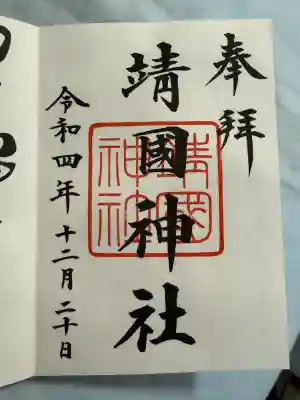 奉拝
靖國神社
令和四年十二月二十日
靖國
神社